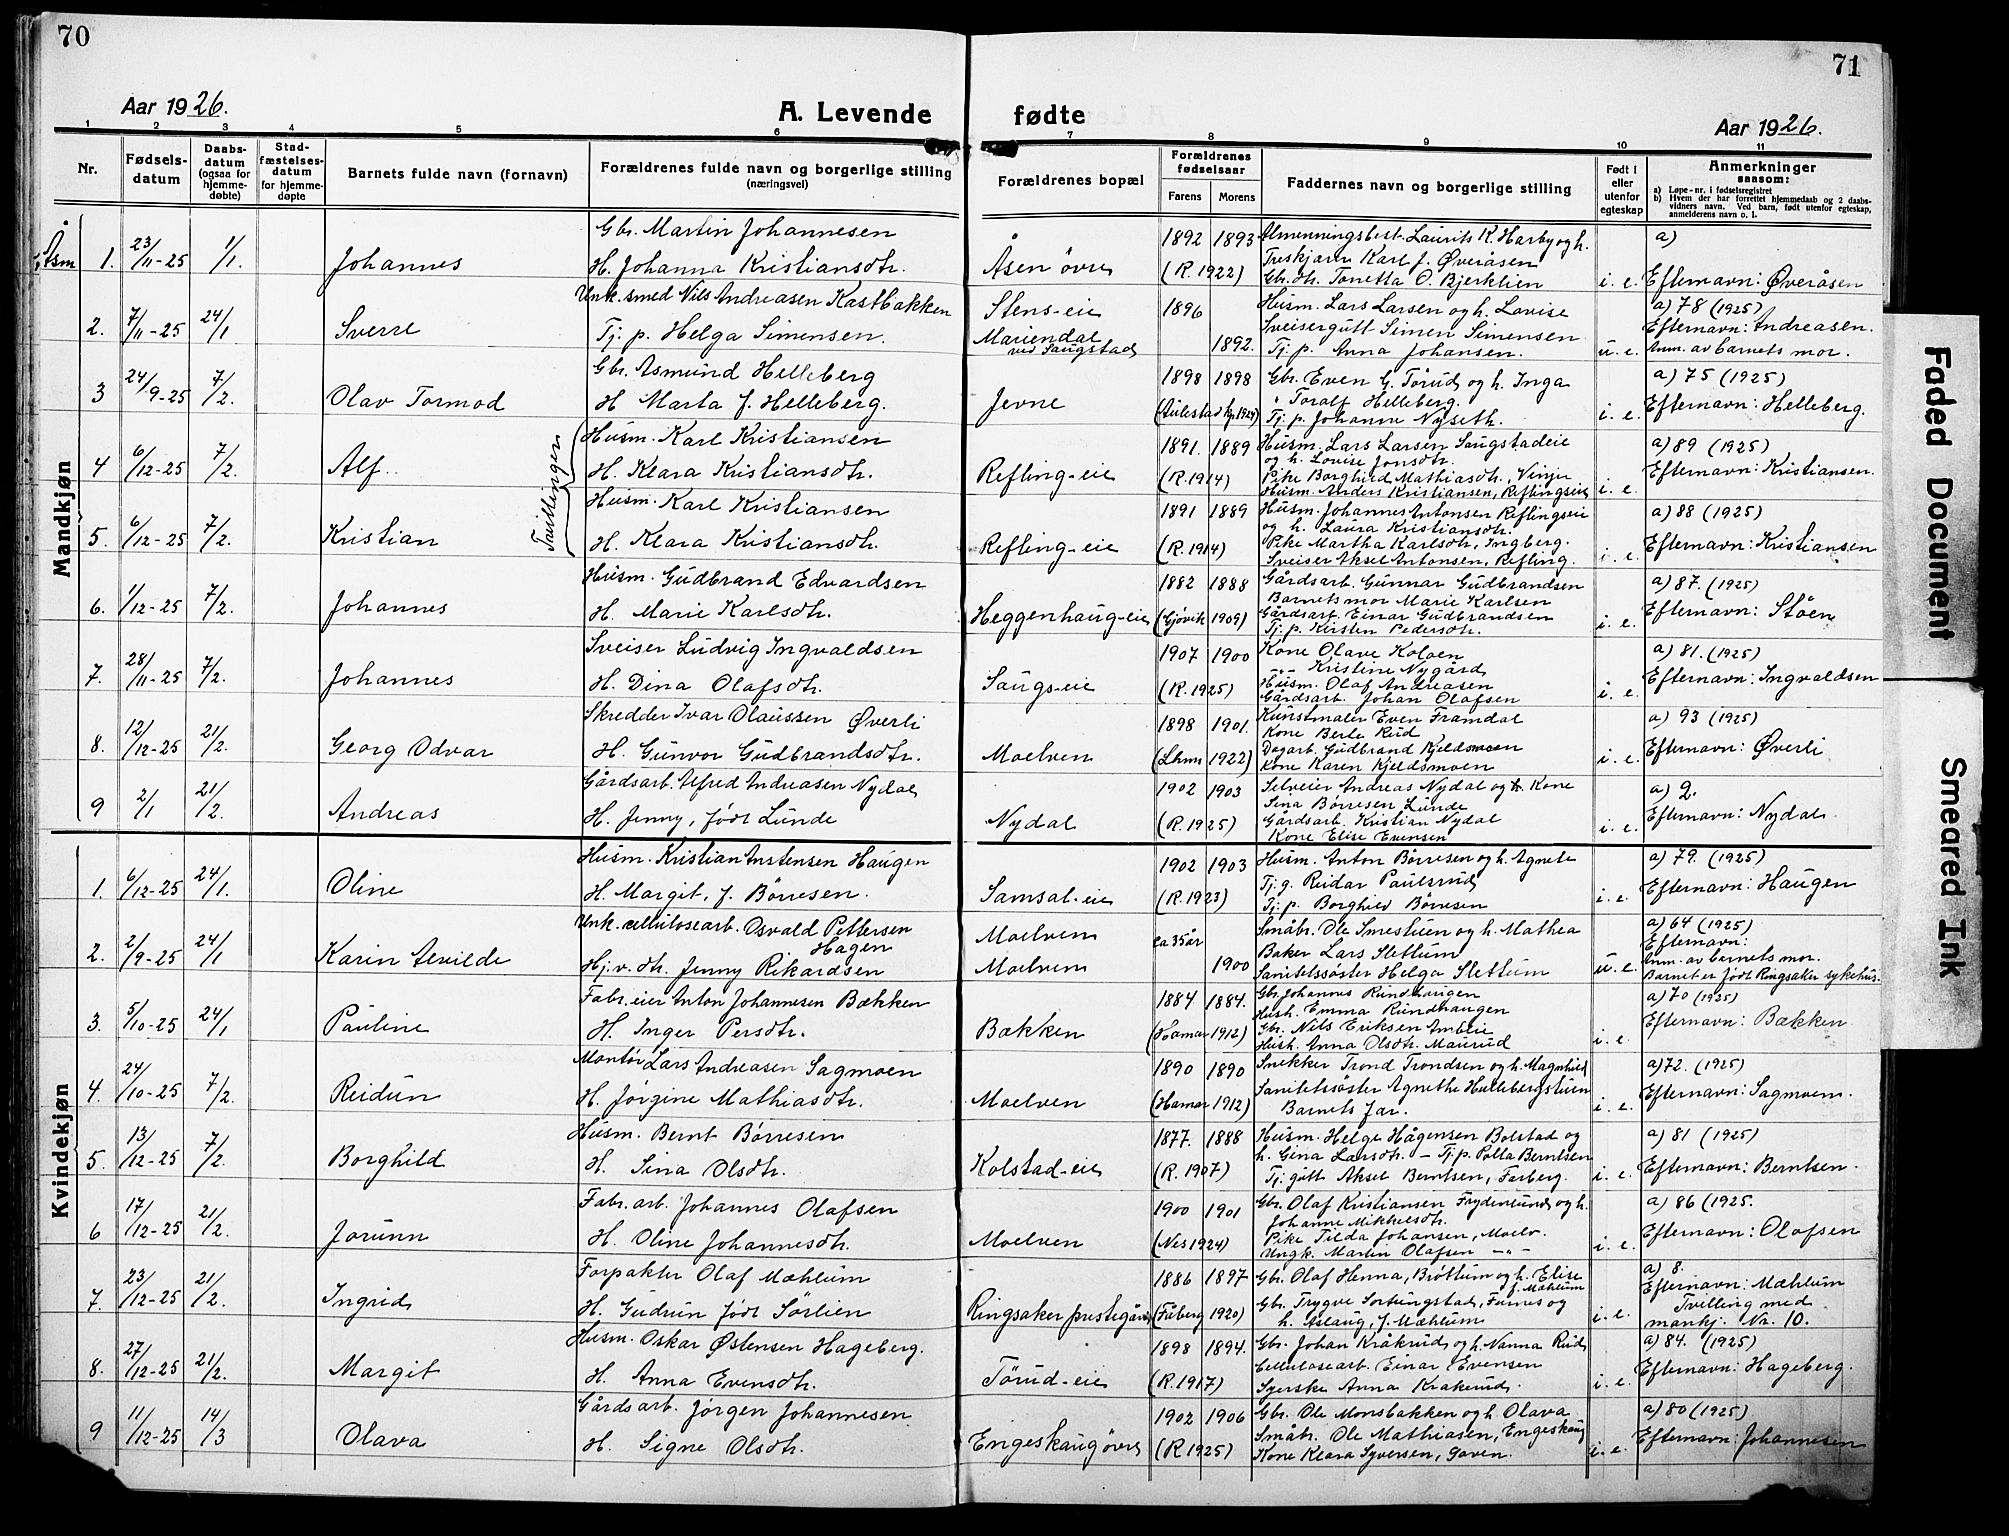 70
71
Aar 1926.
A. Levende
fødte
Aar 1926.
1 2 3 4 5 6 7 8 9 10 11
Nr.
Fødsels-datum
Daabs-datum (ogsaa for hjemme-døbte)
Stad-fæstelses-datum for hjemme-døpte
Barnets fulde navn (fornavn)
Forældrenes fulde navn og borgerlige stilling (næringsvei)
Forældrenes bopæl
Forældrenes fødselsaar
Farens
Morens
Faddernes navn og borgerlige stilling
Født i eller utenfor egteskap
Anmerkninger
saasom:
a) Løpe-nr. i fødselsregistret
b) Hvem der har forrettet hjemmedaab og 2 daabs-vidners navn. Ved barn, født utenfor egteskap, anmelderens navn o. l.
Mandkjøn
1. 23/11-25 1/1. Johannes
Gbr. Martin Johannesen
H. Johanna Kristiansdtr.
Åsen øvre
1892 1893
(R. 1922)
Almenningsbest. Laurits K. Harby og h.
Treskjærer Karl J. Øveråsen
Gbr. dtr. Tonetta O. Bjerklien
i. e.
a)
Efternavn: Øveråsen
2. 7/11-25 24/1 Sverre
Unk. smed Nils Andreasen Kastbakken
Tj. p. Helga Simensen.
Stens-eie
Mariendal
ved Saugstad
1896
1892.
Husm. Lars Larsen og h. Lovise
Sveisergutt Simen Simensen
Tj. p. Anna Johansen.
u. e.
a) 78 (1925)
Efternavn: Andreasen.
Anm. av barnets mor.
3 24/9-25 7/2. Olav Tormod
Gbr. Asmund Helleberg
H Marta J. Helleberg.
Jevne
1898 1898
(Aulestad kp 1924)
Gbr. Even G. Tørud og h. Inga
" Toralf Helleberg.
Tj. p. Johanne Nyseth.
i. e.
a) 75 (1925)
Efternavn: Helleberg.
Tvillinger
4 6/12-25 7/2. Alf.
Husm. Karl Kristiansen
H. Klara Kristiansdtr.
Refling-eie
1891. 1889
(R. 1914)
Husm. Lars Larsen Saugstadeie
og h. Lovise Jonsdtr.
Pike Borghild Mathiasdtr., Vinju
Husm. Anders Kristiansen, Reflingseie
i. e.
a) 89 (1925)
Efternavn: Kristiansen.
5. 6/12-25 7/2. Kristian
Husm. Karl Kristiansen
H. Klara Kristiansdtr.
Refling-eie
1891 1889
(R. 1914)
Husm. Johannes Antonsen Reflingseie
og h. Laura Kristiansdtr.
Pike Martha Karlsdtr, Ingberg.
Sveiser Aksel Antonsen, Refling.
i. e.
a) 88 (1925)
Efternavn: Kristiansen
6. 1/12-25 7/2. Johannes
Husm. Gudbrand Edvardsen
H. Marie Karlsdtr.
Heggenhaug-eie
1882 1888
(Gjøvik 1909)
Gårdsarb. Gunnar Gudbrandsen
Barnets mor Marie Karlsen
Gårdsarb. Einar Gudbrandsen
Tj. p. Kirsten Pedersdtr.
i. e.
a) 87. (1925)
Efternavn: Støen
7. 28/11-25 7/2. Johannes
Sveiser Ludvig Ingvaldsen
H. Dina Olafsdtr.
Saugs-eie
1907 1900
(R. 1925)
Kone Olave Koloen
-"- Kristine Nygård
Husm. Olaf Andreasen
Gårdsarb. Johan Olafsen
i. e.
a) 81. (1925)
Efternavn: Ingvaldsen
8. 12/12-25 21/2. Georg Odvar
Skredder Ivar Olaussen Øverli
H. Gunvor Gudbrandsdtr.
Moelven
1898 1901.
(Lhmr 1922)
Kunstmaler Even Framdal
Kone Berte Rud
Dagarb. Gudbrand Kjeldsmoen
Kone Karen Kjeldsmoen
i. e.
a) 93 (1925)
Efternavn: Øverli
9 2/1 21/2. Andreas
Gårdsarb. Alfred Andreasen Nydal
H. Jenny, født Lunde
Nydal
1902 1903
(R. 1925)
Selveier Andreas Nydal og h. Kone
Sina Børresen Lunde
Gårdsarb. Kristian Nydal
Kone Elise Evensen
i. e.
a) 2.
Efternavn: Nydal.
Kvindekjøn
1. 6/12-25 24/1. Oline
Husm. Kristian Anstensen Haugen
H. Margit, f. Børresen.
Samsal-eie
1902 1903
(R. 1923)
Husm. Anton Børresen og h. Agnete
Tj. g. Reidar Paulsrud
Tj. p. Borghild Børresen
i. e.
a) 79. (1925)
Efternavn: Haugen
2. 2/9-25 24/1 Karin Alvilde
Unk. cellulosearb. Osvald Pettersen
Hagen
Hj. v. dtr. Jenny Rikardsen
Moelven
Moelven
ca 35 år
1900
Småbr. Ole Smestuen og h. Mathea
Baker Lars Slettum
Sanitetssøster Helga Slettum
u. e.
a) 64 (1925)
Efternavn:
Anm. av barnets mor.
Barnet er født Ringsaker sykehus.
3. 5/10-25 24/1 Pauline
Fabr. eier Anton Johannesen Bækken
H. Inger Persdtr.
Bækken
1884 1884.
(Hamar 1912)
Gbr. Johannes Rundhaugen
Hush. Emma Rundhaugen
Gbr. Nils Eriksen Amblie
Hush. Anna Olsdtr. Maurud
i. e.
a) 70 (1925)
Efternavn: Bækken
4. 24/10-25 7/2. Reidun
Montør Lars Andreasen Sagmoen
H. Jørgine Mathiasdtr.
Moelven
1890 1890
(Hamar 1912)
Snekker Trond Trondsen og h. Magnhild
Sanitetssøster Agnethe Hellebergstuen
Barnets far.
i. e.
a) 72. (1925)
Efternavn: Sagmoen.
5. 13/12-25 7/2. Borghild
Husm. Bernt Børresen
H. Sina Olsdtr.
Kolstad-eie
1877. 1888
(R. 1907)
Husm. Helge Hågensen Bolstad og
h. Gina Larsdtr. - Tj. p. Polla Berntsen
Tj. gutt Aksel Berntsen, Farberg.
i. e.
a) 81 (1925)
Efternavn: Berntsen.
6 17/12-25 21/2. Jorunn
Fabr. arb. Johannes Olafsen
H. Oline Johannesdtr.
Moelven
1900 1901
(Nes 1924)
Gbr. Olaf Kristiansen Frydenlund og h.
Johanne Mikkelsdtr.
Pike Tilda Johansen, Moelv.
Ungk. Martin Olafsen -"-
i. e.
a) 86 (1925.
Efternavn: Olafsen
7. 23/12-25 21/2. Ingrid
Forpakter Olaf Mæhlum
H. Gudrun født Sørlien
Ringsaker prestegård
1886 1897
(Fåberg 1920)
Gbr. Olaf Henna, Brøttum og h. Elise
f. Mæhlum
Gbr. Trygve Sortungstad, Furnes og
h. Aslaug, f. Mæhlum
i. e.
a) 8.
Efternavn: Mæhlum
Tvilling med
mankj. Nr. 10.
8. 27/12-25 21/2. Margit
Husm. Oskar Østensen Hageberg.
H. Anna Evensdtr.
Tørud-eie
1898 1894.
(R. 1917)
Gbr. Johan Kråkrud og h. Nanna Rud
Cellulosearb. Einar Evensen
Syerske Anna Krakerud.
i. e.
a) 84. (1925)
Efternavn: Hageberg.
9 11/12-25 14/3 Olava
Gårdsarb. Jørgen Johannesen
H. Signe Olsdtr.
Engeskaug øvre
1902 1906
(R 1925)
Gbr. Ole Monsbakken og h. Olava
Småbr. Ole Mathiasen, Engeskaug
Kone Klara Syversen, Gaven.
i. e.
a) 80 (1925)
Efternavn: Johannesen
Faded Document
Smeared Ink